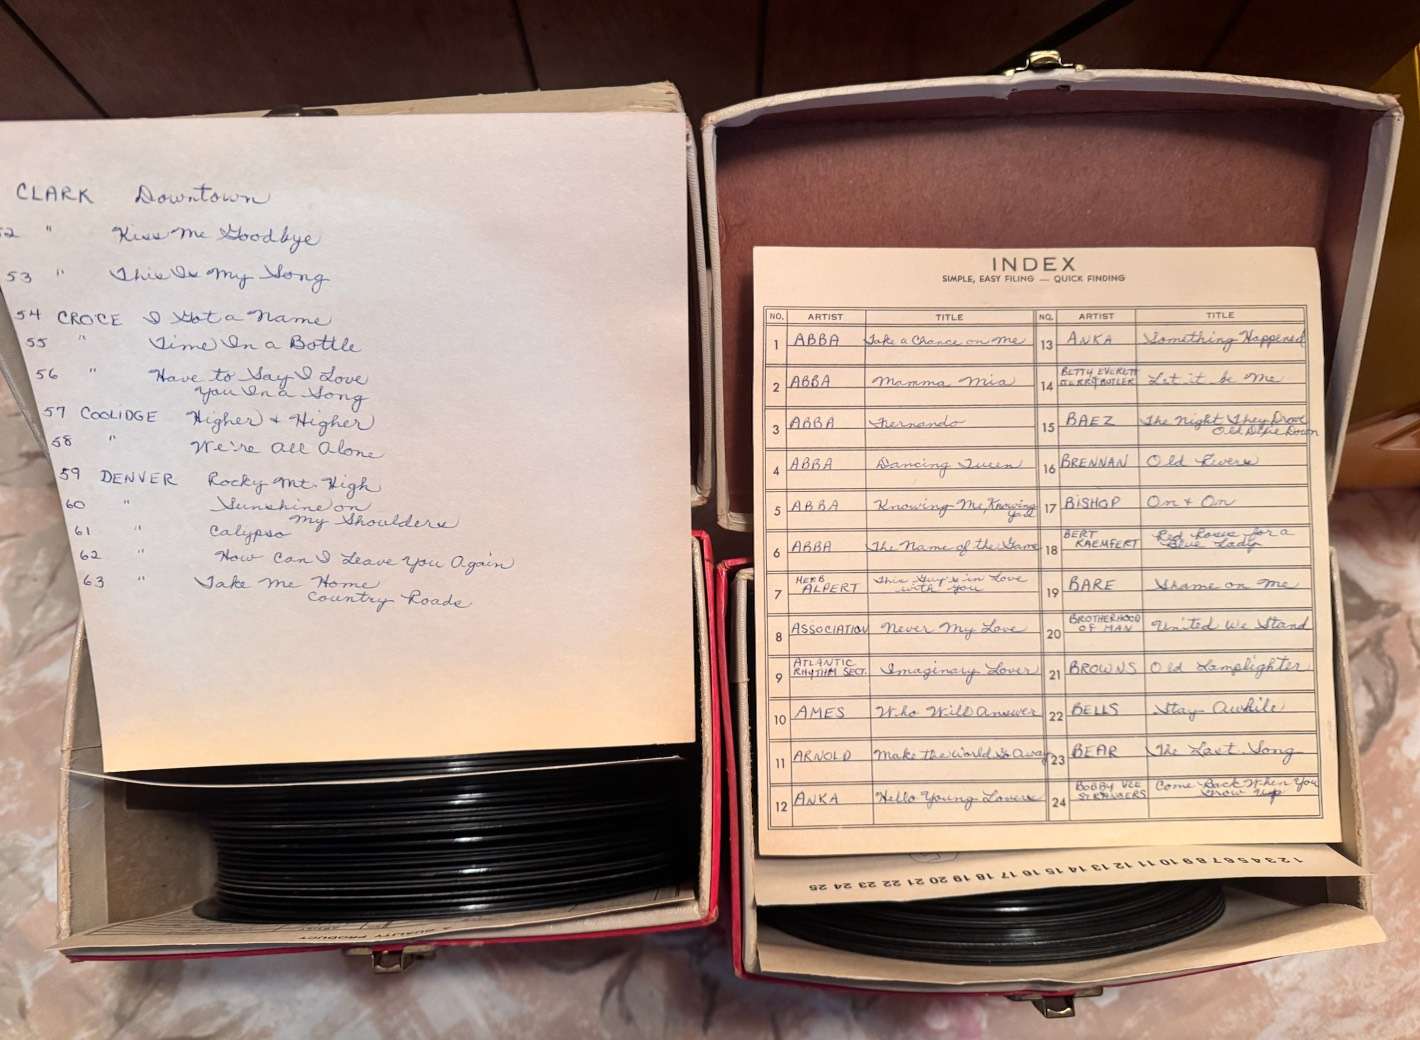 CLARK Downtown
52 " Kiss Me Goodbye
53 " This Is My Song
54 CROCE I Got a Name
55 " Time In a Bottle
56 " Have to Say I Love
You In a Song
57 COOLIDGE Higher & Higher
58 " We're All Alone
59 DENVER Rocky Mt. High
60 " Sunshine on
My Shoulders
61 " Calypso
62 " How Can I Leave You Again
63 " Take Me Home
Country Roads
A QUALITY PRODUCT
INDEX
SIMPLE, EASY FILING — QUICK FINDING
NO. ARTIST TITLE NO. ARTIST TITLE
1 ABBA Take a Chance on Me
2 ABBA Mamma Mia
3 ABBA Fernando
4 ABBA Dancing Queen
5 ABBA Knowing Me, Knowing
You
6 ABBA The Name of the Game
7 HERB ALPERT This Guy's in Love
with You
8 ASSOCIATION Never My Love
9 ATLANTIC
RHYTHM SECT. Imaginary Lover
10 AMES Who Will Answer
11 ARNOLD Make the World Go Away
12 ANKA Hello Young Lovers
13 ANKA Something Happened
14 BETTY EVERETT
JERRY BUTLER Let it be Me
15 BAEZ The Night They Drove
Old Dixie Down
16 BRENNAN Old Rivers
17 BISHOP On & On
18 BERT
KAEMFERT Red Roses for a
Blue Lady
19 BARE Shame on Me
20 BROTHERHOOD
OF MAN United We Stand
21 BROWNS Old Lamplighter
22 BELLS Stay Awhile
23 BEAR The Last Song
24 BOBBY VEE
STRANGERS Come Back When You
Grow Up
1 2 3 4 5 6 7 8 9 10 11 12 13 14 15 16 17 18 19 20 21 22 23 24 25